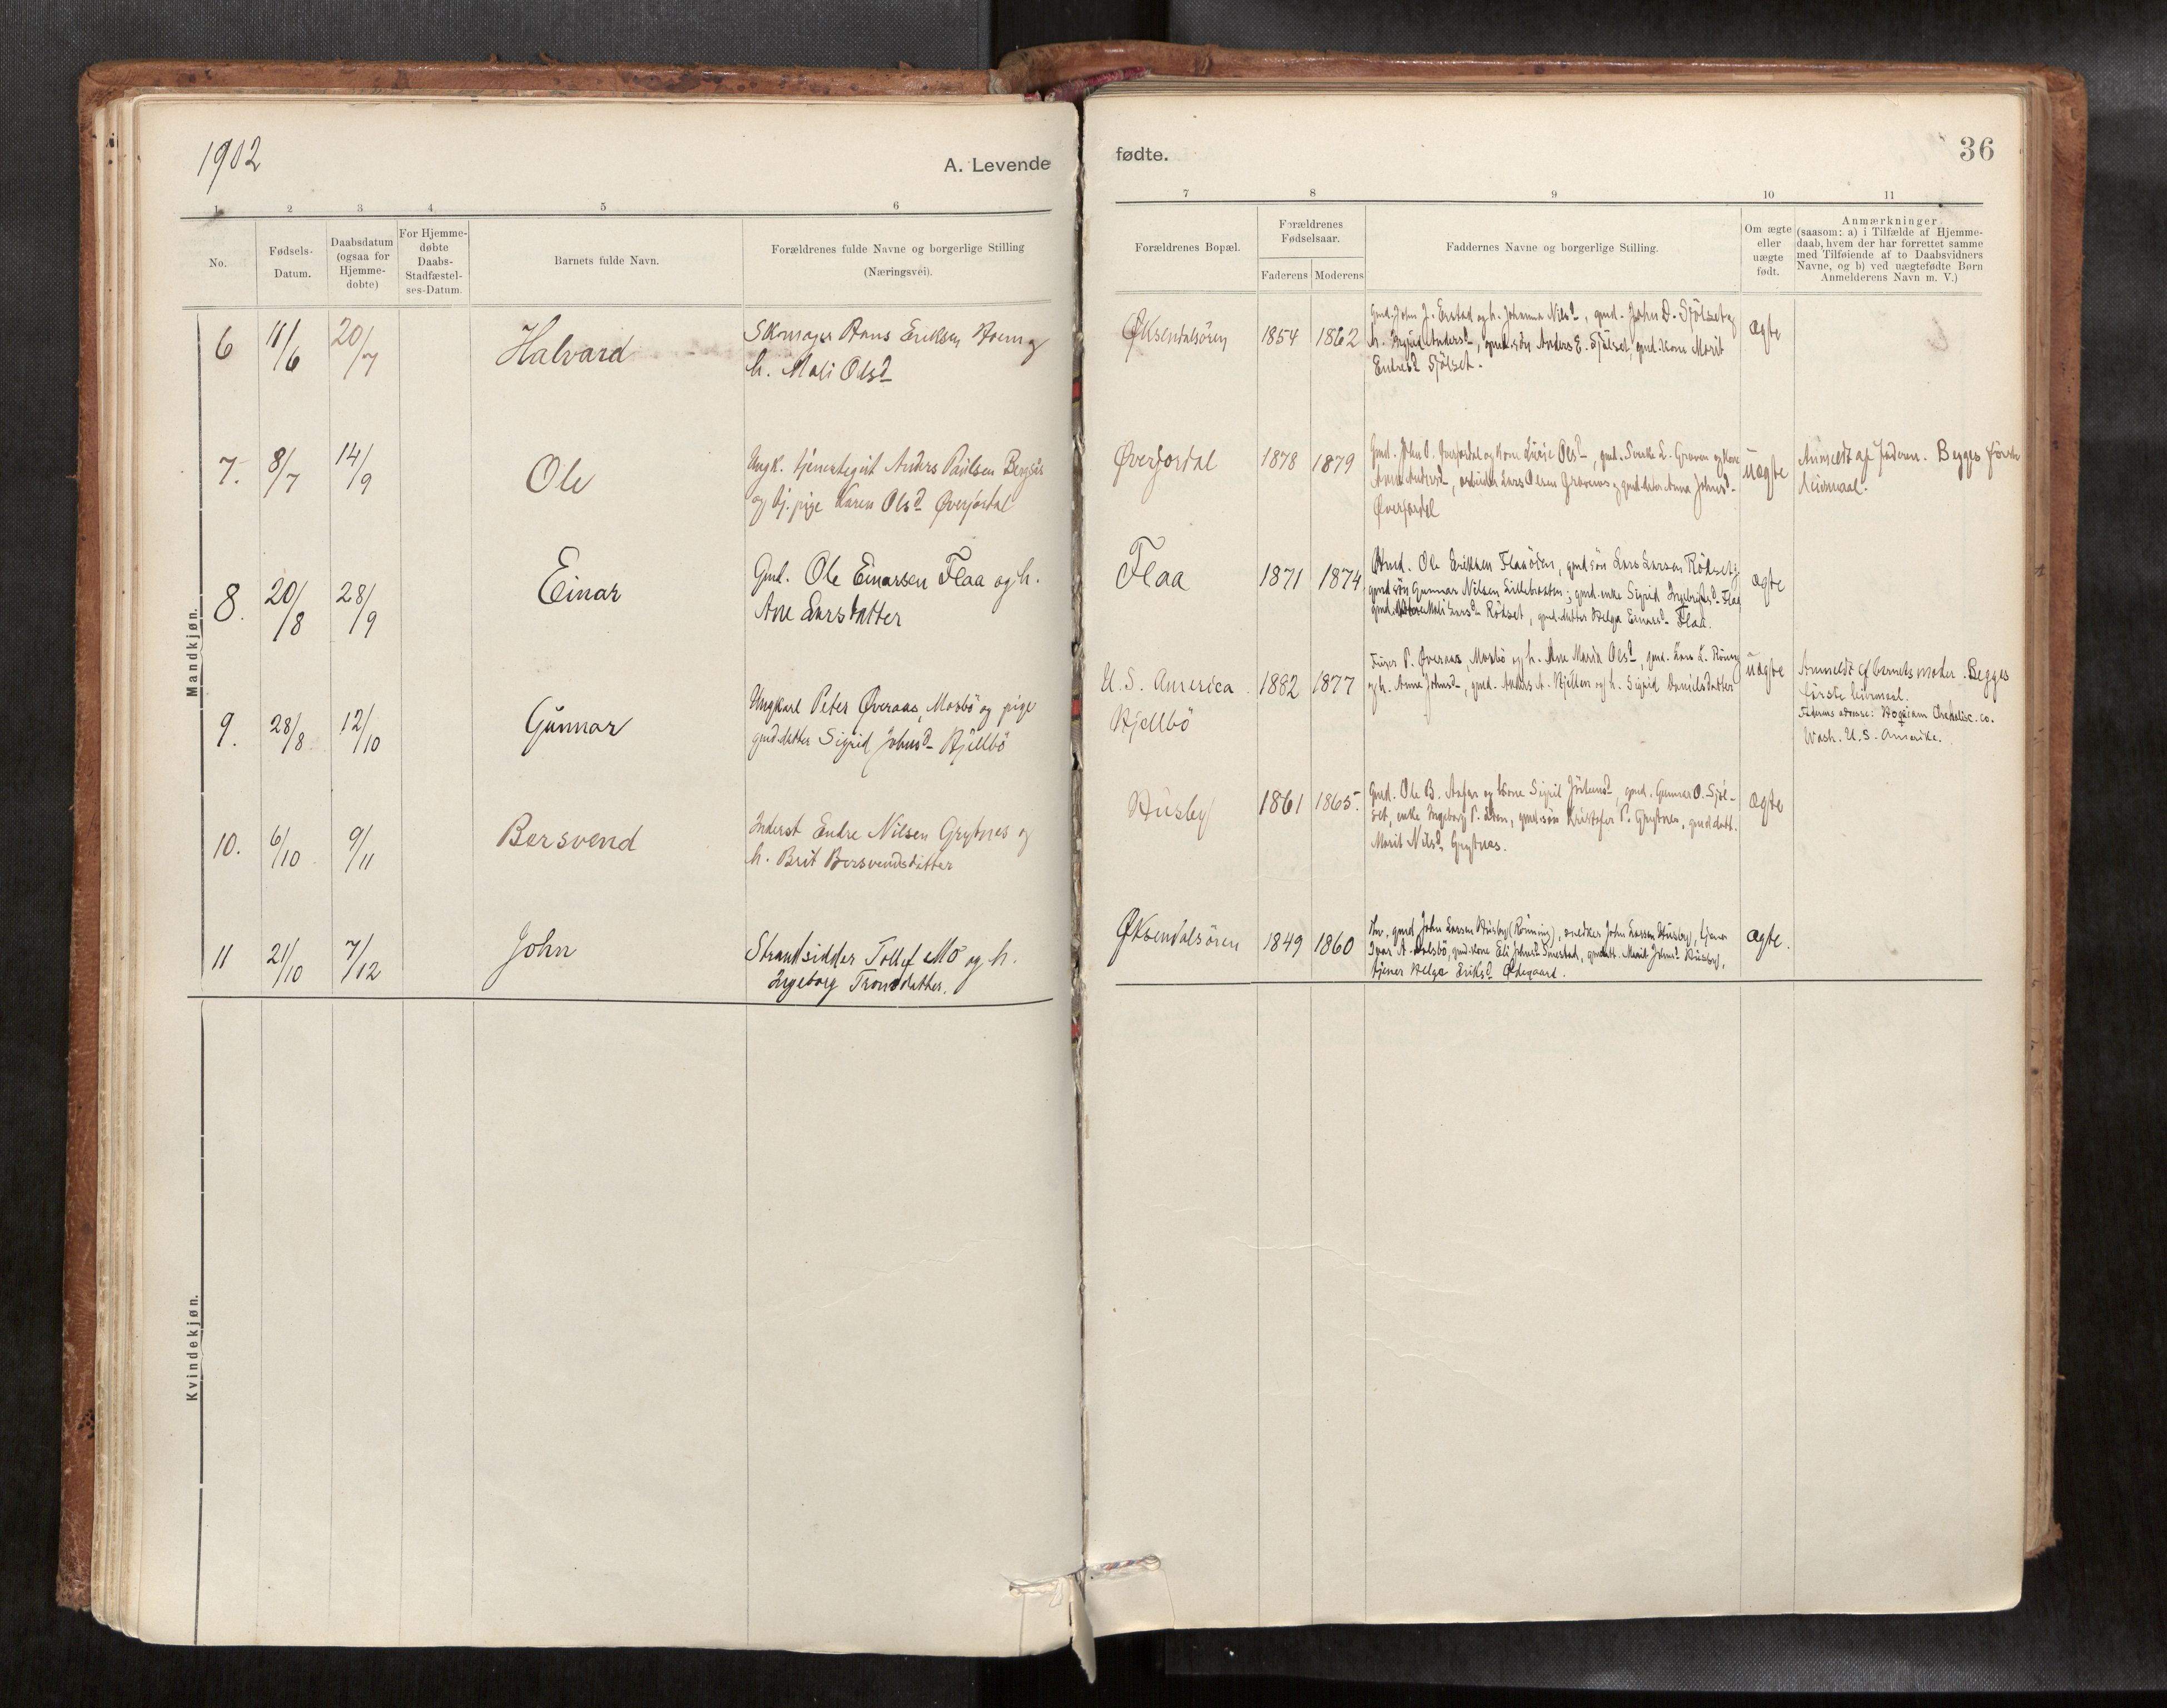 1902
A. Levende
fødte.
36
1 2 3 4 5 6
7 8 9 10 11
No.
Fødsels-
Datum.
Daabsdatum
(ogsaa for
Hjemme-
døbte)
For Hjemme-
døbte
Daabs-
Stadfæstel-
ses-Datum.
Barnets fulde Navn.
Forældrenes fulde Navne og borgerlige Stilling
(Næringsvei).
Forældrenes Bopæl.
Forældrenes
Fødselsaar.
Faderens Moderens
Faddernes Navne og borgerlige Stilling.
Om ægte
eller
uægte
født.
Anmærkninger
(saasom: a) i Tilfælde af Hjemme-
daab, hvem der har forrettet samme
med Tilføiende af to Daabsvidners
Navne, og b) ved uægtefødte Børn
Anmelderens Navn m. V.)
Mandkjøn.
6 11/6 20/7 Halvard
Skomager Hans Eriksen Hoem og
h. Mali Olsd
Øksendalsören 1854 1862
Gmd. John J. Erstad og h. Johanna Nilsd, gmd. John D. Sjölset og
h. Andersd, gmd.sön Anders E. Sjölset, gmd.kone Marit
Endresd Sjölset.
ægte
7. 8/7 14/9 Ole
Ungk. tjenestegut Anders Paulsen
og tj. pige Karen Olsd Øverfordal
Øverfordal 1878 1879
Gmd. John O. Øverfordal og kone Olsd, gmd. L. Graven og kone
Anne Andersd, arbeider Lars Olsen og gmd.datter Anna Johnsd
Øverfordal
uægte
Anmeldt af faderen. Begges første
leiermaal.
8. 20/8 28/9 Einar
Gmd. Ole Einarsen Flaa og h.
Ane Larsdatter
Flaa 1871 1874
Gmd. Ole Eriksen Flaaöien, gmd.sön Lars Larsen Rödset,
gmd.sön Gunnar Nilsen, gmd. enke Sigrid Flaa
gmd.datter Mali Larsd Rödset, gmd.datter Helga Einarsd Flaa.
ægte
9. 28/8 12/10 Gunnar
Ungkarl Peter Øveraas, Mosbö og pige
gmd.datter Sigrid Johnsd Hjellbö
U. S. America
Hjellbö
1882 1877
P. Øveraas, Mosbö og h. Ane Maria Olsd, gmd. Lars L.
og h. Anne Johnsd, gmd. Anders A. og h. Sigrid Danielsdatter
uægte
Anmeldt af barnets moder. Begges
første leiermaal.
Faderens adresse: Hoquiam Chehalisc. Co.
Wash. U. S. Amerika.
10. 6/10 9/11 Bersvend
Inderst Endre Nilsen Grytnes og
h. Brit Bersvendsdatter
Husby 1861 1865.
Gmd. Ole B. og kone Sigrid, gmd. Gunnar O. Sjöl-
set, enke Ingeborg P., gmd.sön Kristofer P. Grytnes, gmd.datt.
Marit Nilsd Grytnes.
ægte
11 21/10 7/12 John
Strandsidder Tollef Mo og h.
Ingeborg Tronsdatter.
Øksendalsören 1849 1860
gmd John Larsen Husby (Rönning), snedker John Larsen Husby, tjener
Ivar A., gmd.kone Eli Johnsd, Marit Johnsd Husby,
tjener Helga Eriksd Ødegaard.
ægte.
Kvindekjøn.